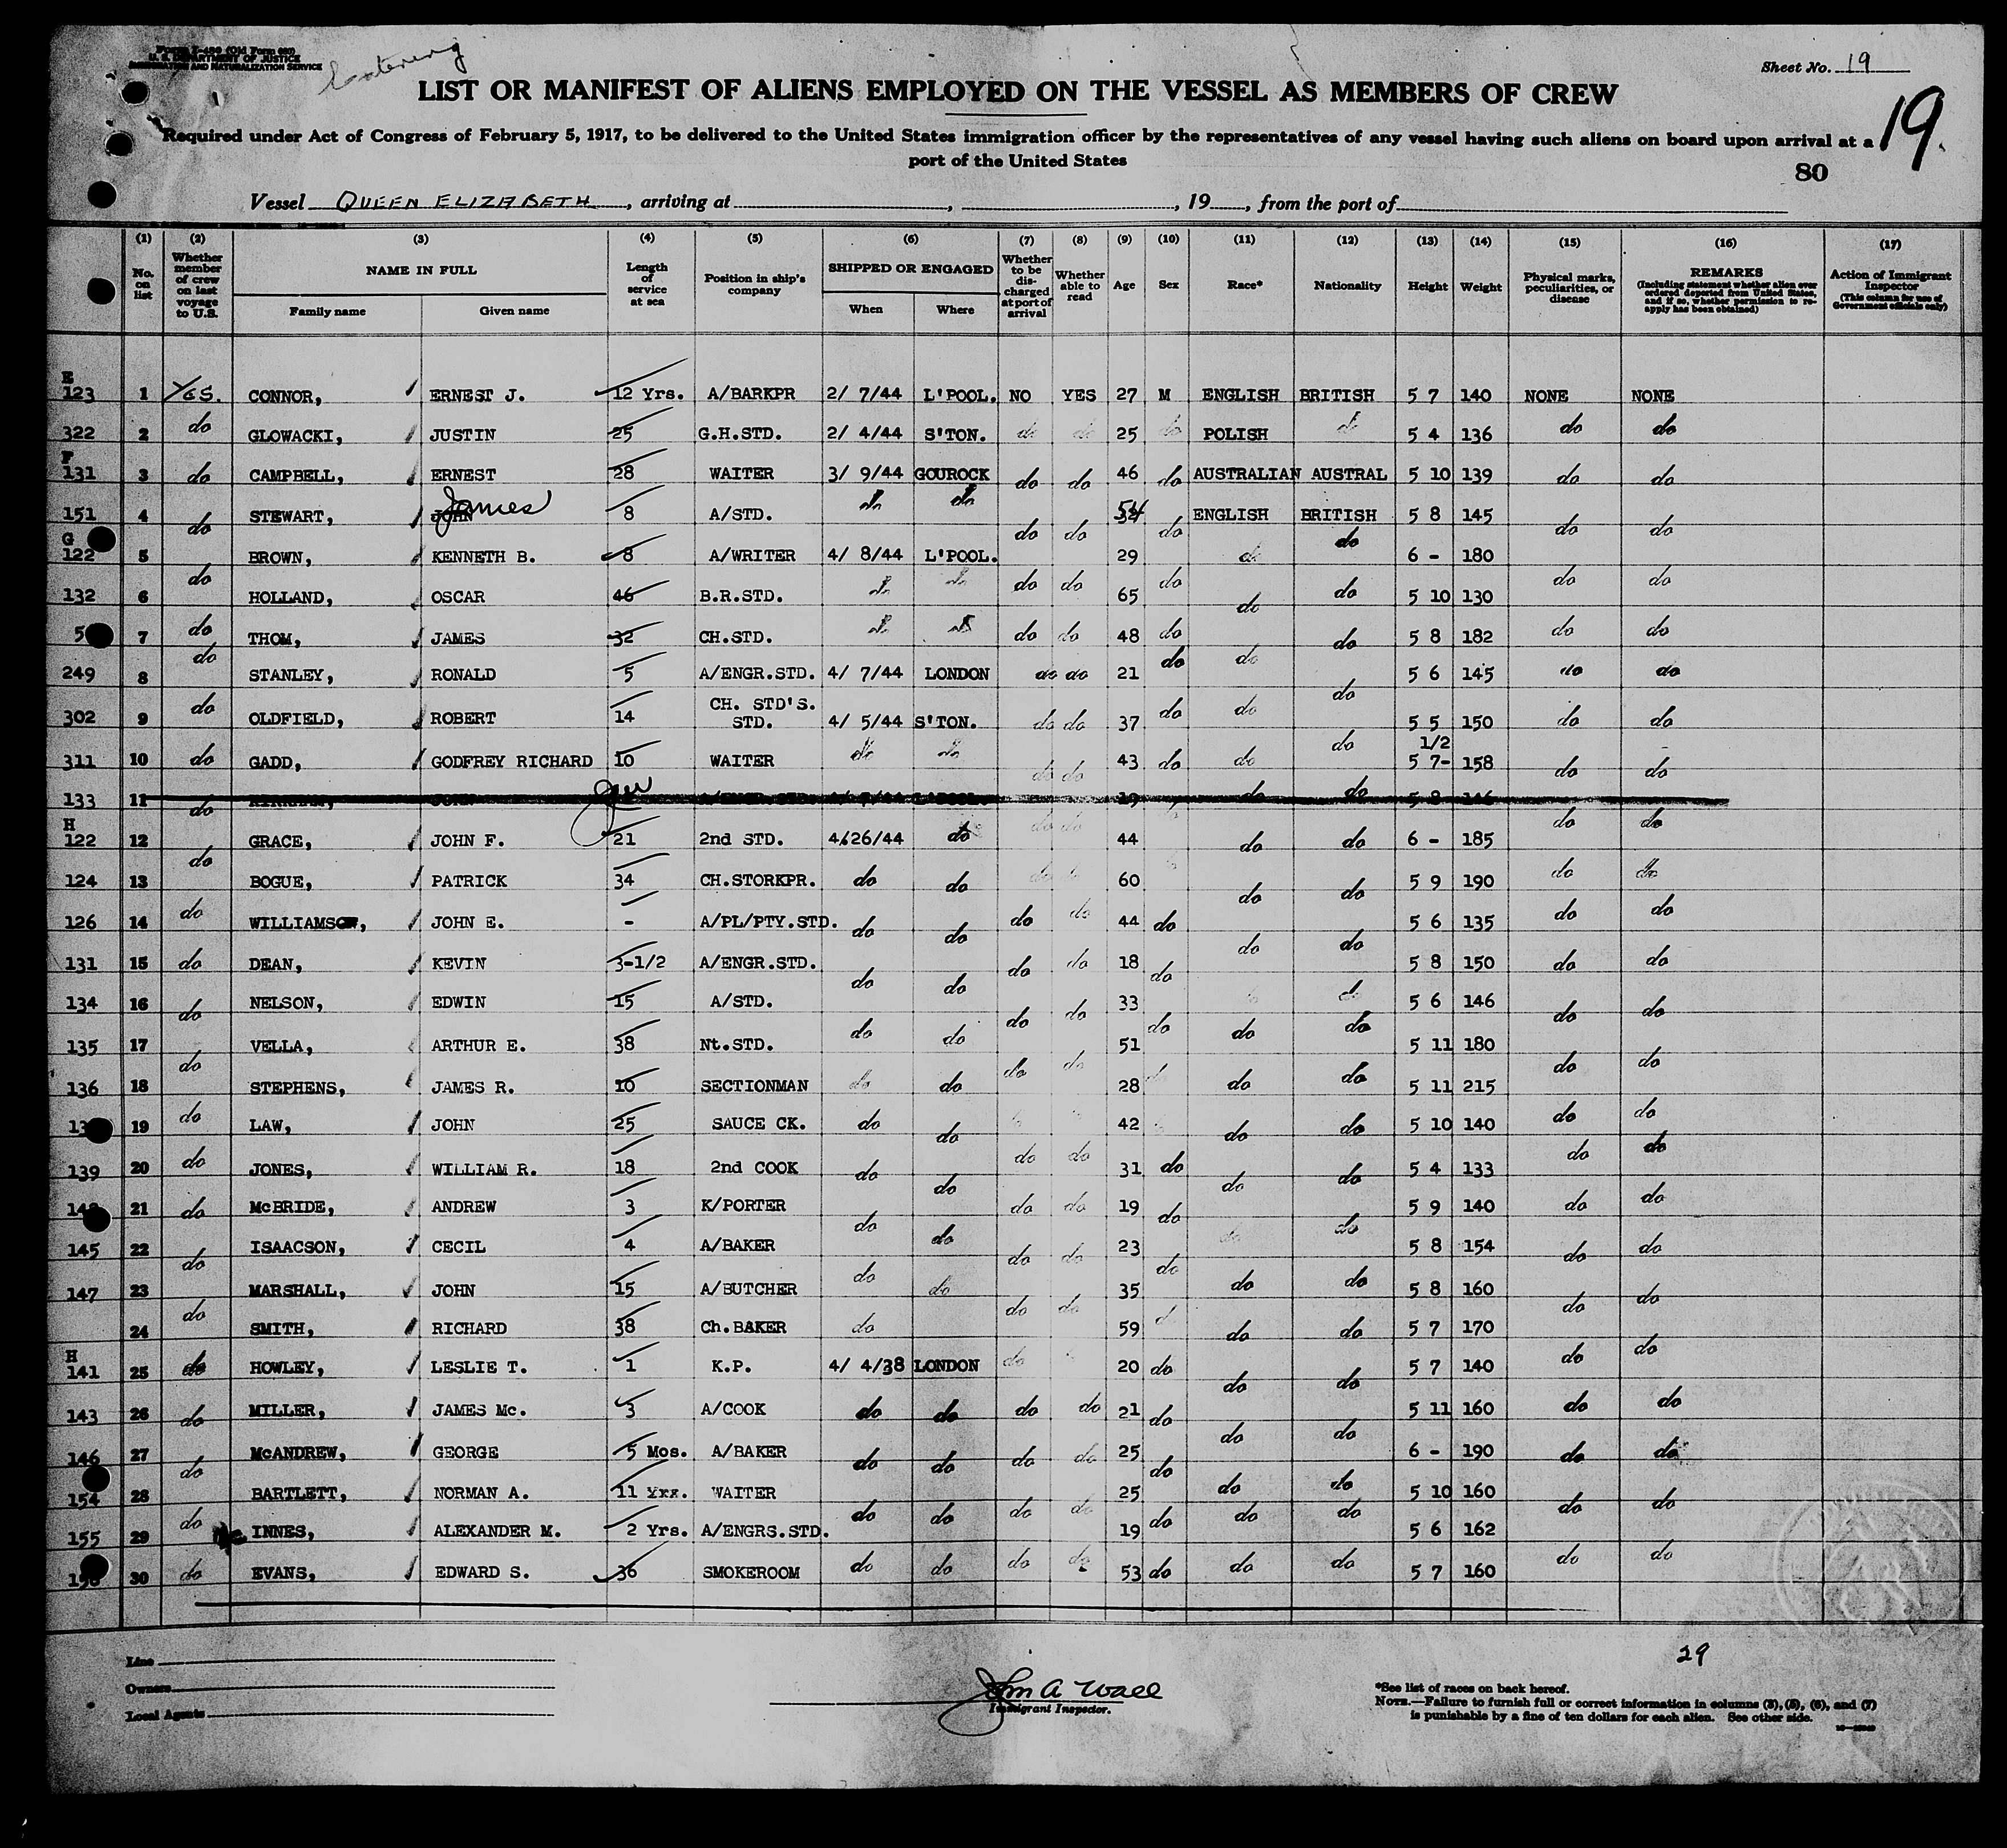 Form I-480 (Old Form 680)
U. S. DEPARTMENT OF JUSTICE
IMMIGRATION AND NATURALIZATION SERVICE
Catering
Sheet No. 19
LIST OR MANIFEST OF ALIENS EMPLOYED ON THE VESSEL AS MEMBERS OF CREW
19.
Required under Act of Congress of February 5, 1917, to be delivered to the United States immigration officer by the representatives of any vessel having such aliens on board upon arrival at a
port of the United States
80
Vessel QUEEN ELIZABETH, arriving at , , 19 , from the port of
(1) No. on list (2) Whether member of crew on last voyage to U.S. (3) NAME IN FULL Family name Given name (4) Length of service at sea (5) Position in ship's company (6) SHIPPED OR ENGAGED When Where (7) Whether to be discharged at port of arrival (8) Whether able to read (9) Age (10) Sex (11) Race* (12) Nationality (13) Height (14) Weight (15) Physical marks, peculiarities, or disease (16) REMARKS (Including statement whether alien ever ordered deported from United States, and if so, whether permission to re-apply has been obtained) (17) Action of Immigrant Inspector (This column for use of Government officials only)
E 123 1 Yes. CONNOR, ERNEST J. 12 Yrs. A/BARKPR 2/ 7/44 L'POOL. NO YES 27 M ENGLISH BRITISH 5 7 140 NONE NONE
322 2 do GLOWACKI, JUSTIN 25 G.H.STD. 2/ 4/44 S'TON. do do 25 do POLISH do 5 4 136 do do
F 131 3 do CAMPBELL, ERNEST 28 WAITER 3/ 9/44 GOUROCK do do 46 do AUSTRALIAN AUSTRAL 5 10 139 do do
151 4 do STEWART, JOHN James 8 A/STD. do do do do 54 do ENGLISH BRITISH 5 8 145 do do
G 122 5 do BROWN, KENNETH B. 8 A/WRITER 4/ 8/44 L'POOL. do do 29 do do do 6 - 180 do do
132 6 do HOLLAND, OSCAR 46 B.R.STD. do do 65 do do 5 10 130
5 7 do THOM, JAMES 32 CH.STD. do do do do 48 do do 5 8 182 do do
249 8 do STANLEY, RONALD 5 A/ENGR.STD. 4/ 7/44 LONDON do do 21 do do do 5 6 145 do do
302 9 do OLDFIELD, ROBERT 14 CH. STD'S. STD. 4/ 5/44 S'TON. do do 37 do do 5 5 150 do do
311 10 do GADD, GODFREY RICHARD 10 WAITER do do do do 43 do do do 5 7-1/2 158 do do
133 11 do JOHN A/ENGR.STD. L'POOL. 19 do do 5 8 146
H 122 12 GRACE, JOHN F. 21 2nd STD. 4/26/44 do do do 44 do do 6 - 185 do do
124 13 do BOGUE, PATRICK 34 CH.STORKPR. do do do do 60 do do 5 9 190 do do
126 14 do WILLIAMSON, JOHN E. - A/PL/PTY.STD. do do do do 44 do do do 5 6 135 do do
131 15 do DEAN, KEVIN 3-1/2 A/ENGR.STD. do do do do 18 do 5 8 150 do do
134 16 do NELSON, EDWIN 15 A/STD. do do do do 33 do do do 5 6 146 do do
135 17 do VELLA, ARTHUR E. 38 Nt.STD. do do do do 51 do do 5 11 180 do do
136 18 STEPHENS, JAMES R. 10 SECTIONMAN do do 28 do do 5 11 215
19 do LAW, JOHN 25 SAUCE CK. do do 42 do do 5 10 140 do do
139 20 do JONES, WILLIAM R. 18 2nd COOK do do do do 31 do do do 5 4 133 do do
21 do McBRIDE, ANDREW 3 K/PORTER do do do do 19 do do 5 9 140 do do
145 22 do ISAACSON, CECIL 4 A/BAKER do do do do 23 do 5 8 154 do do
147 23 MARSHALL, JOHN 15 A/BUTCHER do do 35 do do 5 8 160
24 do SMITH, RICHARD 38 Ch.BAKER do do do 59 do do 5 7 170 do do
H 141 25 do HOWLEY, LESLIE T. 1 K.P. 4/ 4/38 LONDON do 20 do do do 5 7 140 do do
143 26 do MILLER, JAMES Mc. 3 A/COOK do do do do 21 do do do 5 11 160 do do
146 27 do McANDREW, GEORGE 5 Mos. A/BAKER do do do do 25 do 6 - 190 do do
154 28 BARTLETT, NORMAN A. 11 Yrs. WAITER do do do do 25 do do do 5 10 160 do do
155 29 do INNES, ALEXANDER M. 2 Yrs. A/ENGRS.STD. 19 do do 5 6 162
30 do EVANS, EDWARD S. 36 SMOKEROOM do do do do 53 do do do 5 7 160 do do
29
Line
Owners
Local Agents
John A Wall
Immigrant Inspector.
*See list of races on back hereof.
NOTE.—Failure to furnish full or correct information in columns (3), (5), (6), and (7)
is punishable by a fine of ten dollars for each alien. See other side.